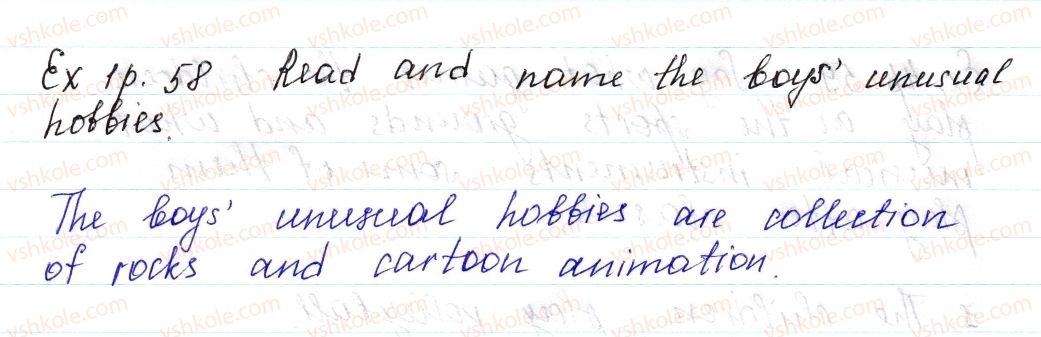 Ex 1 p. 58 Read and name the boys' unusual
hobbies.
The boys' unusual hobbies are collection
of rocks and cartoon animation.